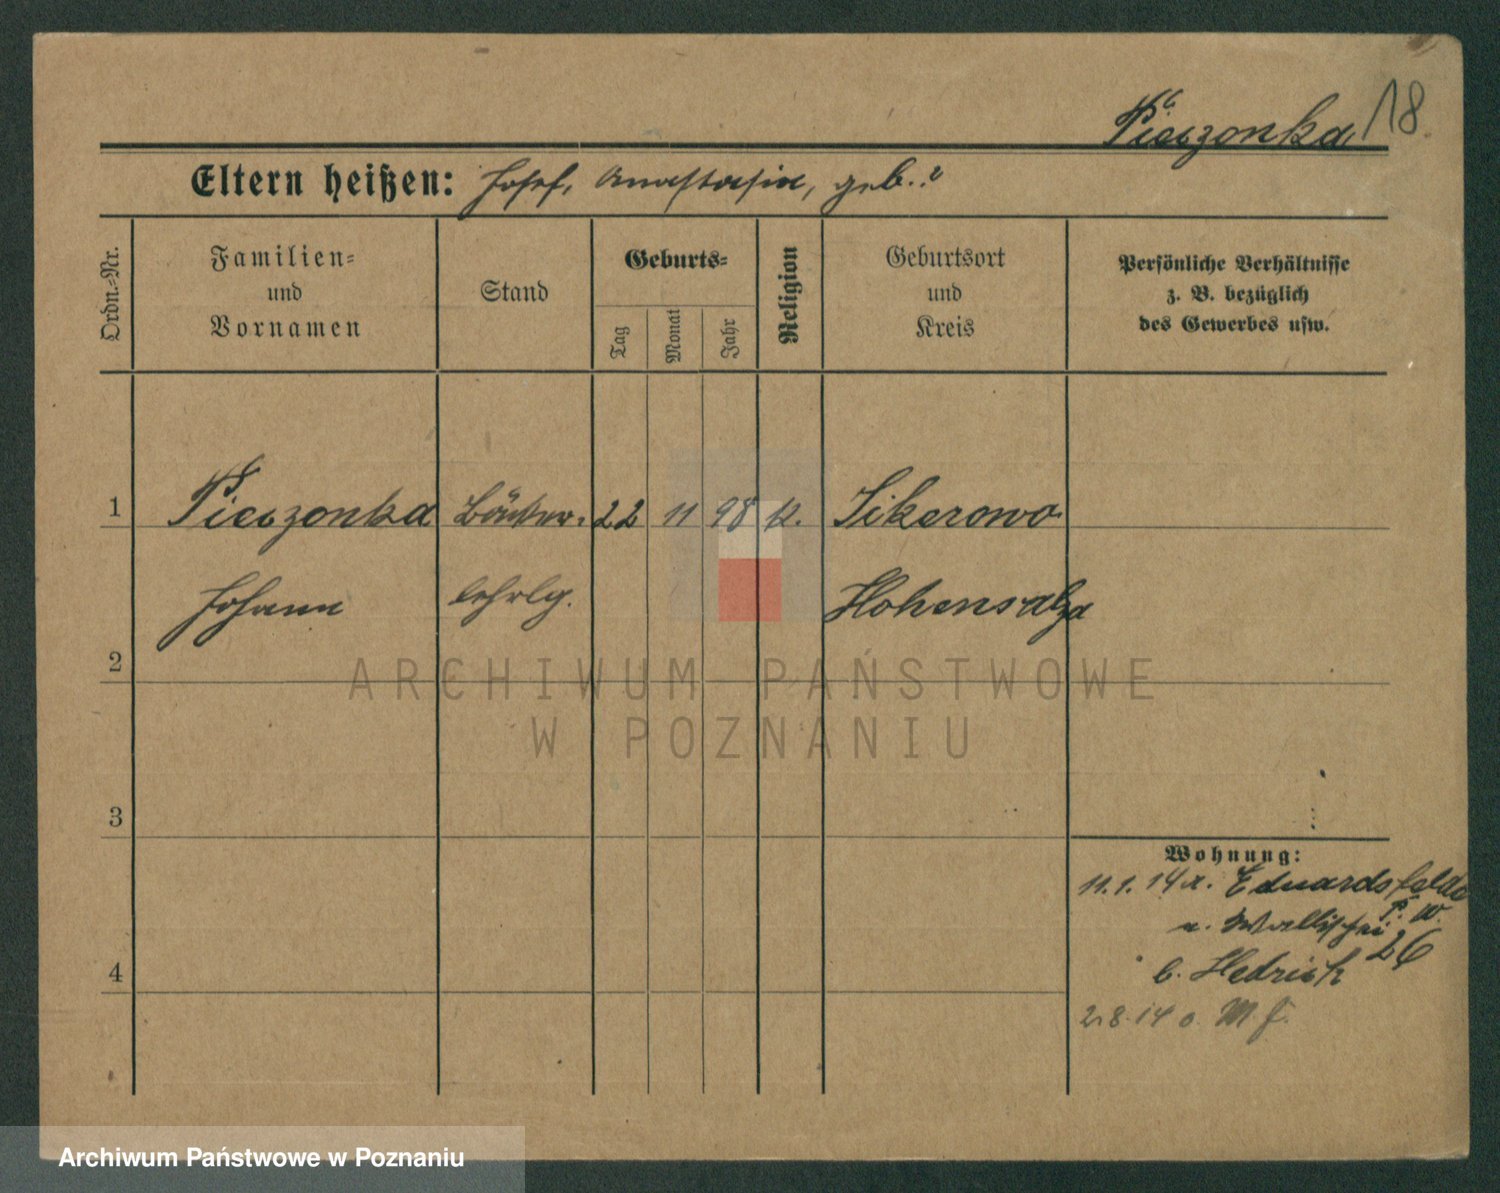 Pieczonka 18
Eltern heißen: Josef, Anastasia, geb. ?
Ordn.-Nr.
Familien-
und
Vornamen
Stand
Geburts-
Tag
Monat
Jahr
Religion
Geburtsort
und
Kreis
Persönliche Verhältnisse
z. B. bezüglich
des Gewerbes usw.
1 Pieczonka Bäcker- 22 11 98 k. Sikorowo
Johann lehrlg. Hohensalza
2
3
4
Wohnung:
11.1.14 a. Eduardsfelde
P. W.
n. Wallischei 26
b. Hedrich
2.8.14 o.
ARCHIWUM PAŃSTWOWE
W POZNANIU
Archiwum Państwowe w Poznaniu